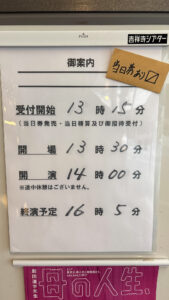 吉祥寺シアター
御案内
当日券有り
受付開始 13時15分
(当日券発売・当日精算及び御招待受付)
開場 13時30分
開演 14時00分
※途中休憩はございません。
終演予定 16時5分
母の人生、